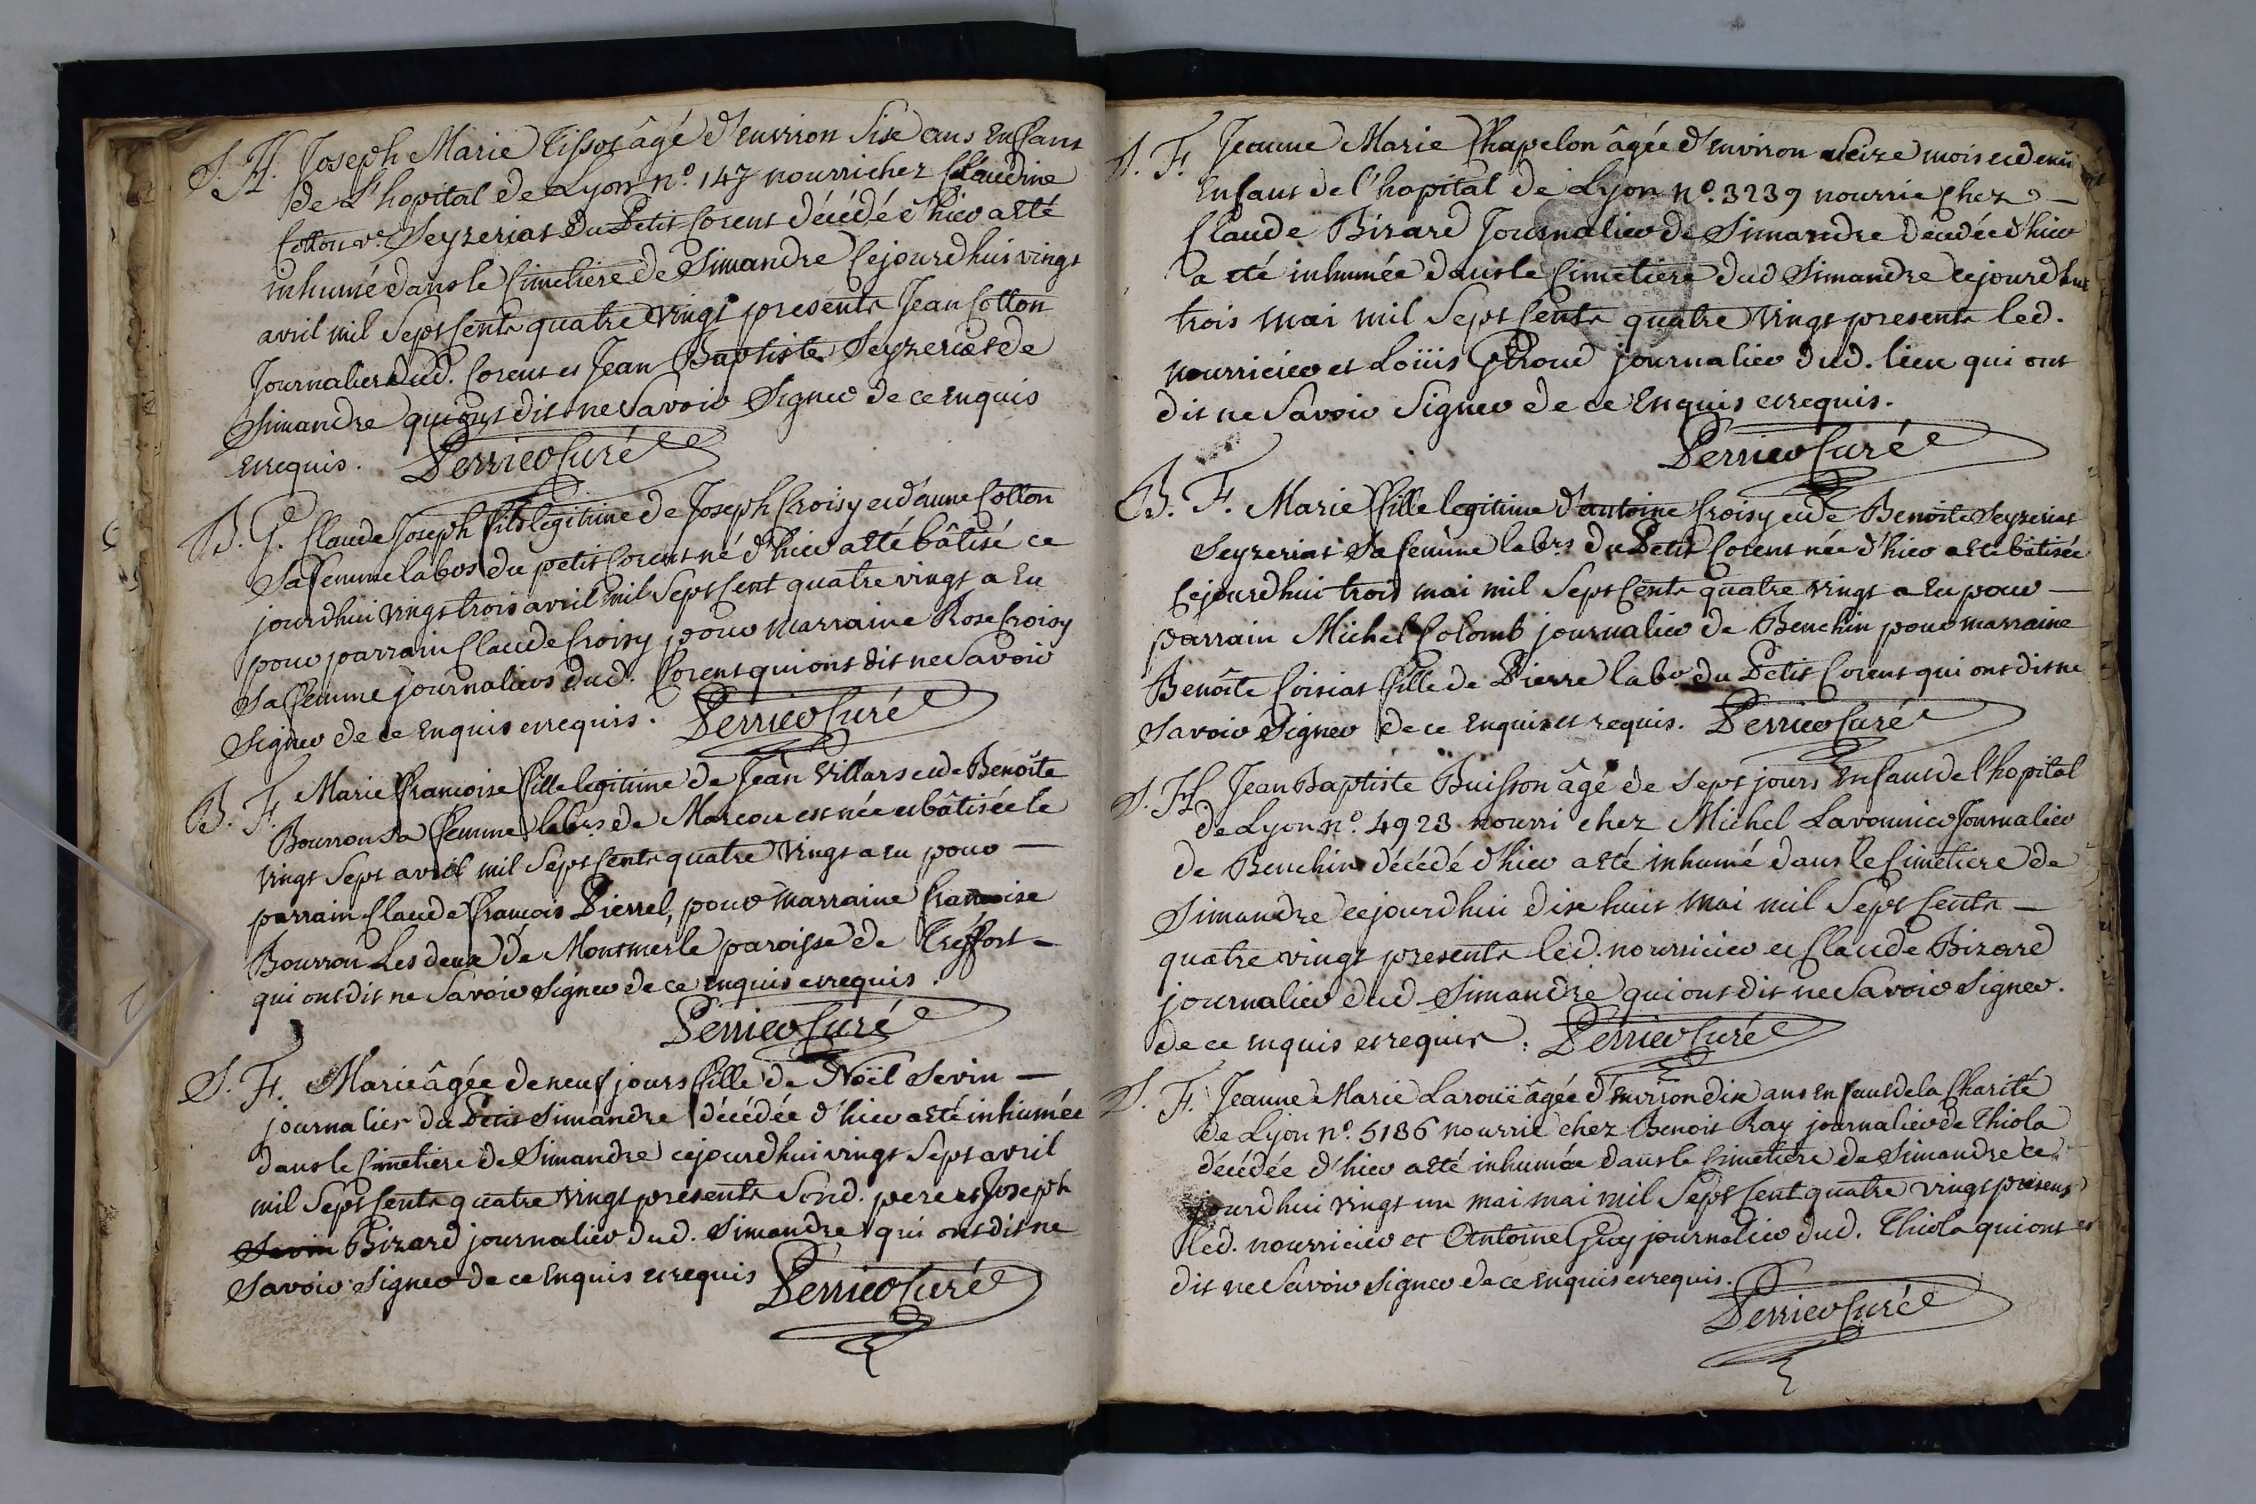 S. H. Joseph Marie Tissot âgé d'environ Six ans Enfant
de L'hopital de Lyon n.º 147 nourri chez Claudine
Cotton v.e Seyzeriat du Petit Corent décédé d'hier a eté
inhumé dans le Cimetiere de Simandre Cejourdhui vingt
avril mil Sept Cents quatre vingt presents Jean Cotton
Journalier dud. Corent et Jean Baptiste Seyzeriat de
Simandre qui ont dit ne Savoir Signer de ce enquis
et requis. Perrier Curé
B. G. Claude Joseph fils legitime de Joseph Croisy et d'anne Cotton
Sa femme labrs du petit Corent né d'hier a eté bâtisé ce
jourdhui vingt trois avril mil Sept Cent quatre vingt a eu
pour parrain Claude Croisy pour marraine Rose Croisy
Sa femme journaliers dud. Corent qui ont dit ne Savoir
Signer de ce enquis et requis. Perrier Curé
B. F. Marie Françoise fille legitime de Jean Villars et de Benoîte
Bourron Sa femme labrs de Marcou est née et bâtisée le
vingt Sept avril mil Sept Cents quatre vingt a eu pour —
parrain Claude François Pierrel, pour marraine francoise
Bourron Les deux de Montmerle paroisse de Treffort —
qui ont dit ne Savoir Signer de ce enquis et requis.
Perrier Curé
S. F. Marie âgée de neuf jours fille de Noël Sevin —
journalier du Petit Simandre décédée d'hier a eté inhumée
dans le Cimetiere de Simandre cejourdhui vingt Sept avril
mil Sept Cents quatre vingt presents Sond. pere et Joseph
Sevin Bizard journalier dud. Simandre qui ont dit ne
Savoir Signer de ce enquis et requis Perrier Curé
S. F. Jeanne Marie Chapelon âgée d'environ seize mois et demi
Enfant de l'hopital de Lyon N.º 3239 nourrie Chez —
Claude Bizard Journalier de Simandre décédée d'hier
a eté inhumée dans le Cimetiere dud Simandre cejourdhui
trois mai mil Sept Cents quatre vingt presents led.
nourricier et Loüis Giroud journalier dud. lieu qui ont
dit ne Savoir Signer de ce Enquis et requis.
Perrier Curé
B. F. Marie fille legitime d'antoine Croisy et de Benoite Seyzeriat
Seyzeriat Sa femme labrs du Petit Corent née d'hier a eté bâtisée
Cejourdhui trois mai mil Sept Cents quatre vingt a eu pour —
parrain Michel Colomb journalier de Benchin pour marraine
Benôite Coisiat fille de Pierre labr du Petit Corent qui ont dit ne
Savoir Signer de ce enquis et requis. Perrier Curé
S. H. Jean Baptiste Buisson âgé de Sept jours Enfant de l'hopital
de Lyon n.º 4923 nourri chez Michel Lavomier Journalier
de Benchin décédé d'hier a eté inhumé dans le Cimetiere de
Simandre cejourdhui dix huit mai mil Sept Cents —
quatre vingt presents led. nourricier et Claude Bizard
journalier dud Simandre qui ont dit ne Savoir Signer.
de ce enquis et requis. Perrier Curé
S. F. Jeanne Marie Laroüe âgée d'environ dix ans enfant de la Charité
de Lyon n.º 5186 nourrie chez Benoit Ray journalier de Thiola
décédée d'hier a eté inhumée dans le Cimetiere de Simandre ce
jourdhui vingt un mai mai mil Sept Cent quatre vingt presens
led. nourricier et Antoine Guy journalier dud. Thiola qui ont
dit ne Savoir Signer de ce enquis et requis.
Perrier Curé